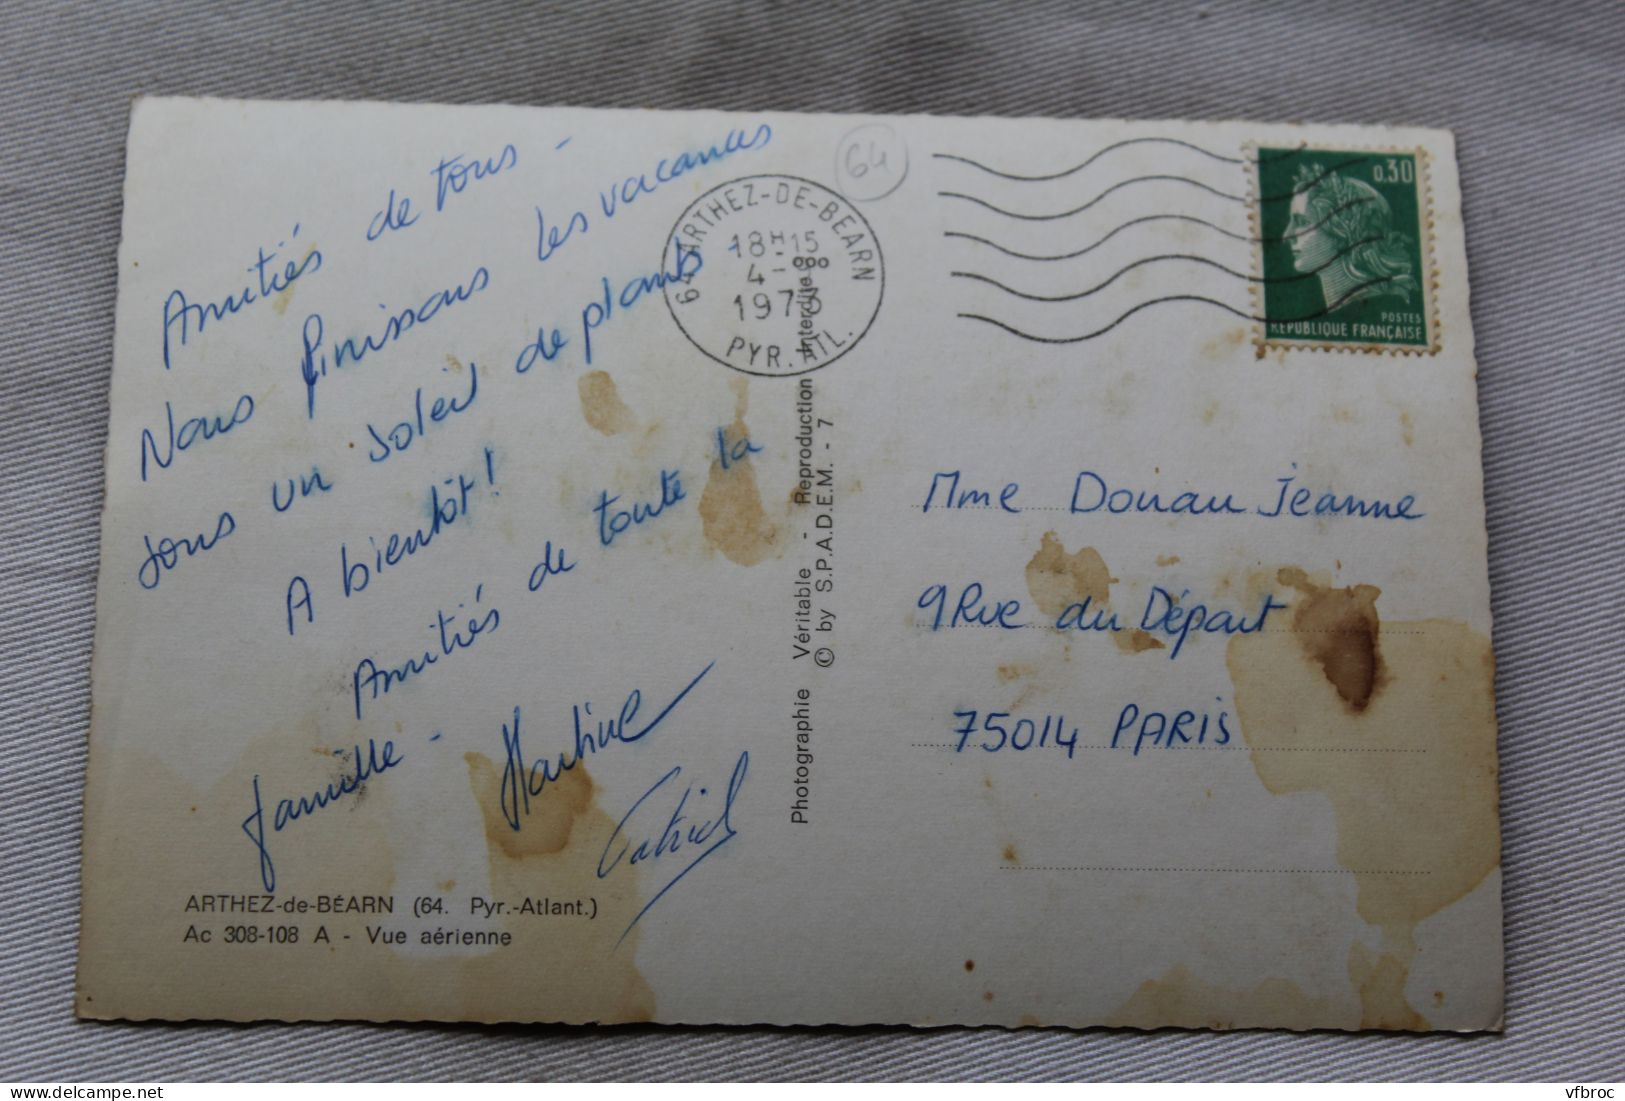 Amitiés de tous -
Nous finissons les vacances
sous un soleil de plomb -
A bientôt!
Amitiés de toute la
famille -
Martine
Patrick
ARTHEZ-de-BÉARN (64. Pyr.-Atlant.)
Ac 308-108 A - Vue aérienne
Photographie Véritable - Reproduction Interdite
© by S.P.A.D.E.M. - 7
64
64 ARTHEZ-DE-BEARN
18H15
4-
1973
PYR. ATL.
0,30
POSTES
REPUBLIQUE FRANÇAISE
Mme Donau Jeanne
9 Rue du Départ
75014 PARIS
vfbroc